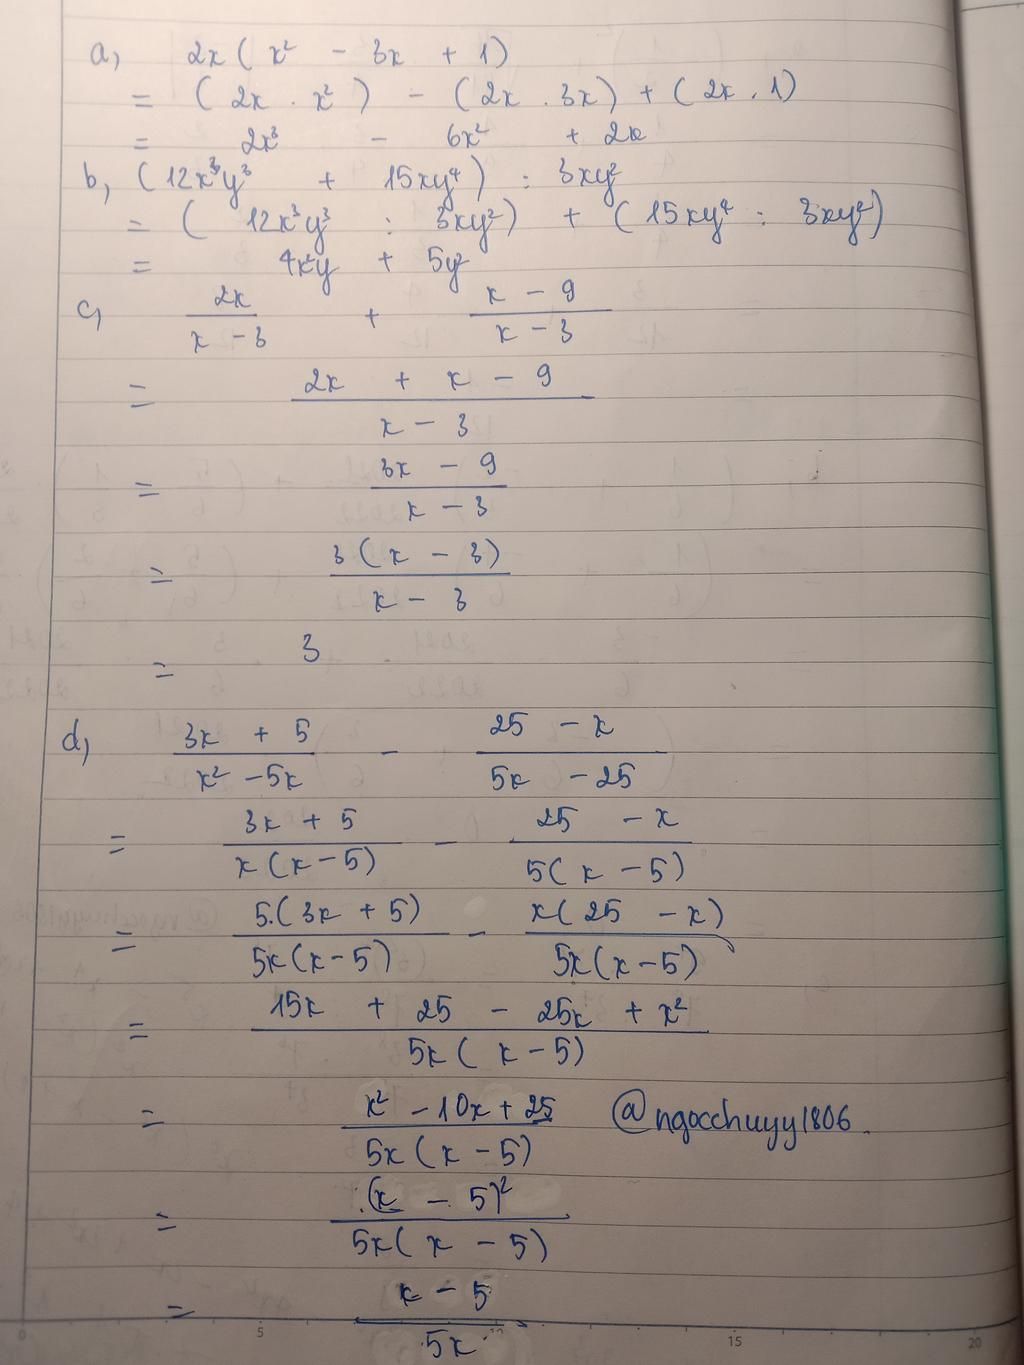 a, 2x ( x² - 3x + 1)
= ( 2x . x² ) - (2x . 3x) + (2x . 1)
= 2x³ - 6x² + 2x
b, (12x³y³ + 15xy⁴) : 3xy²
= ( 12x³y³ : 3xy²) + (15xy⁴ : 3xy²)
= 4x²y + 5y²
c, 2x / x - 3 + x - 9 / x - 3
= 2x + x - 9 / x - 3
= 3x - 9 / x - 3
= 3 ( x - 3) / x - 3
= 3
d, 3x + 5 / x² - 5x - 25 - x / 5x - 25
= 3x + 5 / x (x - 5) - 25 - x / 5( x - 5)
= 5.(3x + 5) / 5x(x - 5) - x( 25 - x) / 5x(x - 5)
= 15x + 25 - 25x + x² / 5x ( x - 5)
= x² - 10x + 25 / 5x (x - 5) @ngocchuyy1806.
= (x - 5)² / 5x( x - 5)
= x - 5 / 5x
0 5 10 15 20